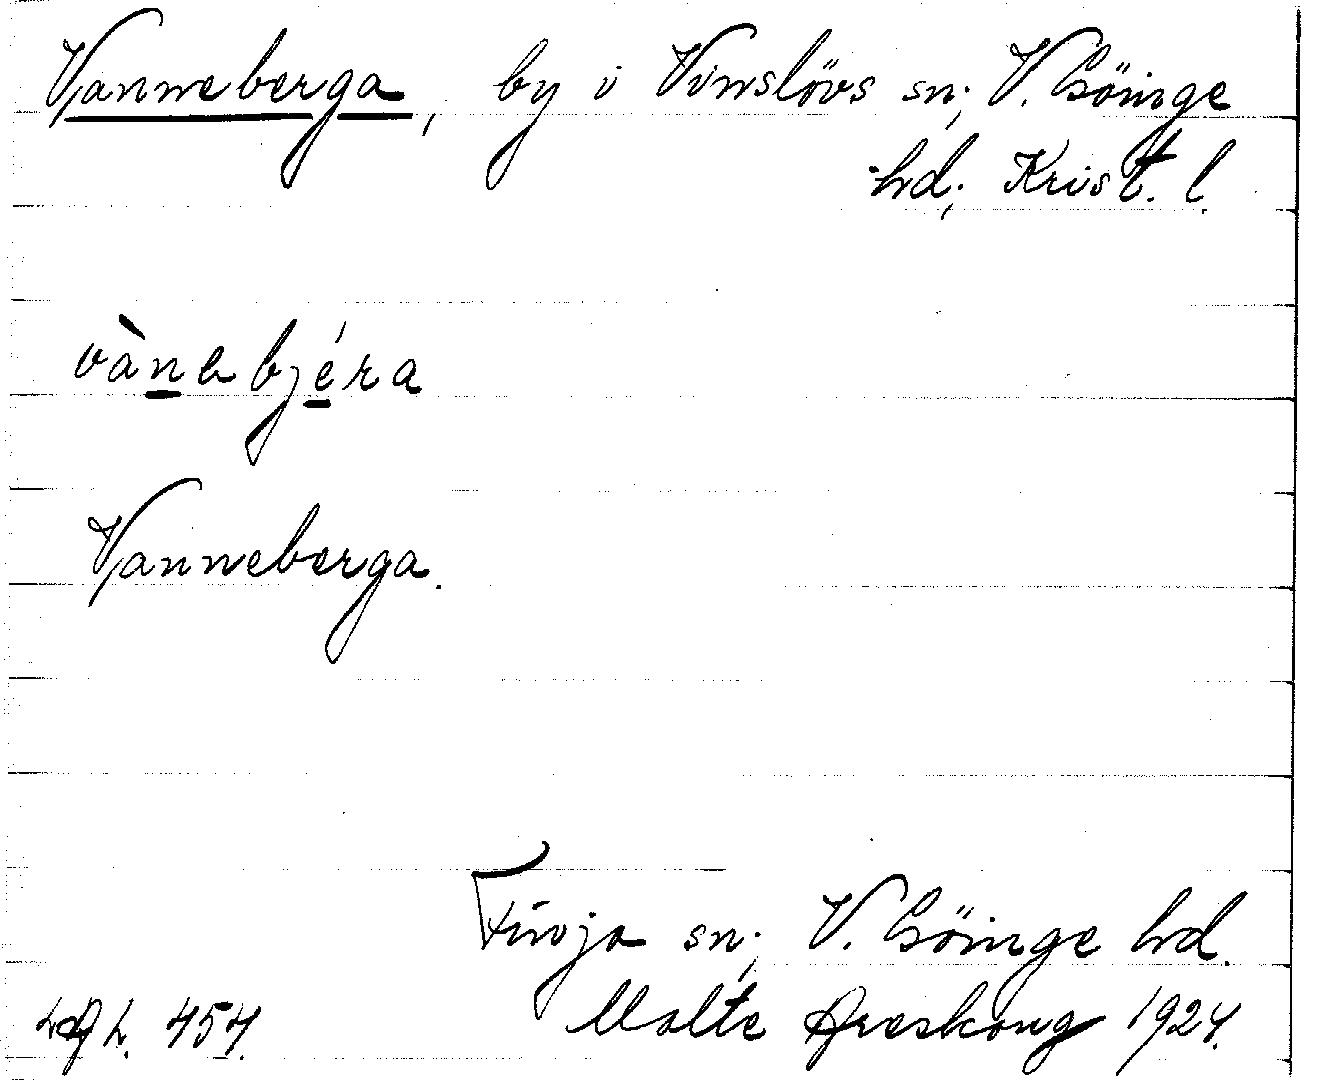 Vanneberga, by i Vinslövs sn; V. Göinge
hd; Krist. l.
vànəbjéra
Vanneberga.
Finja sn; V. Göinge hd.
Malte Areskoug 1924.
454.